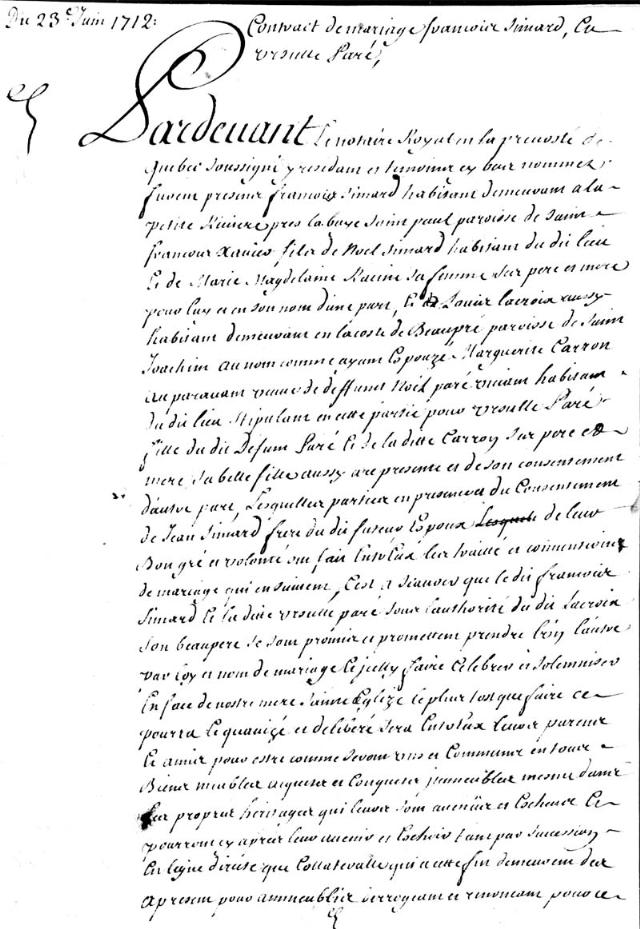 Du 23e Juin 1712:
Contract de mariage francois Simard, Et
Ursulle Paré,
Pardevant Le notaire Royal en la prevosté de
Quebec soussigné y residant et temoins cy bas nommez
furent presens francois Simard habitant demeurant a la
petite Riviere pres la baye Saint paul paroisse de Saint
francois Xavier fils de Noel Simard habitant du dit lieu
Et de Marie Magdelaine Racine sa femme ses pere et mere
pour luy et en son nom d'une part, Et Louis lacroix aussy
habitant demeurant en la coste de Beaupré paroisse de Saint
Joachim au nom comme ayant Espouzé Marguerite Carron
au paravant veuve de deffunct Noël paré vivant habitant
du dit lieu Stipulant en cette partie pour Ursulle Paré
fille du dit Defunt Paré Et de la ditte Carron ses pere et
mere sa belle fille aussy a ce presente et de son consentement
d'autre part, Lesquelles parties en presence du Consentement
de Jean Simard frere du dit futur Espoux de leur
Bon gré et volonté ont fait Entr'Eux les traitté et conventions
de mariage qui en suivent, C'est a scavoir que le dit francois
Simard Et la ditte Ursulle paré sous l'authorité du dit Lacroix
son beaupere se sont promis et promettent prendre L'un L'autre
par Loy et nom de mariage Et jcelluy faire Celebrer et Solemniser
En face de nostre mere Sainte Eglize Le plus tost que faire ce
pourra Et qu'avizé et deliberé sera Entr'Eux Leurs parens
Et amis pour estre comme seront uns et Communs en tous
Biens meubles acquests et Conquests jmmeubles mesme dans
Les propres heritages qui leurs sont avenüs et Escheus Et
pourront cy apres leur avenir et Eschoir tant par succession
En ligne directe que Collateralle qui a cette fin demeurent des
apresent pour ammeublis derrogeant et renoncant pour ce